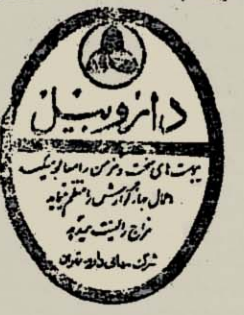 داروبیل
یبوست های سخت و مزمن را معالجه میکند
اعمال جهاز گوارش را منظم مینماید
مزاج را لینت میدهد
شرکت سهامی داروئی تهران